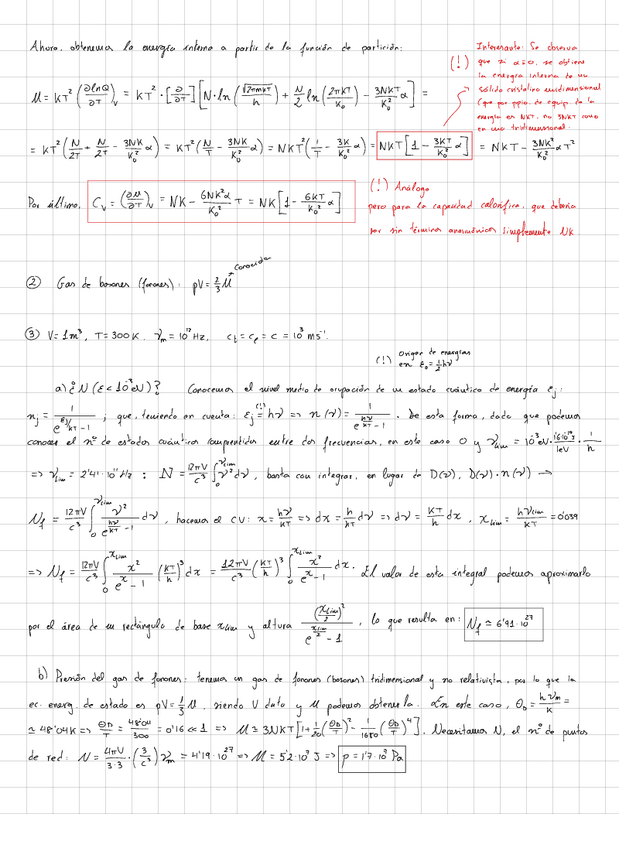 Ahora, obtenemos la energía interna a partir de la función de partición:
U = KT² (∂lnQ/∂T)_V = KT² · [∂/∂T] [N·ln(√(2πmKT)/h) + N/2 ln(2πKT/K₀) − 3NKT/K₀² α] =
= KT² (N/2T + N/2T − 3NK/K₀² α) = KT² (N/T − 3NK/K₀² α) = NKT² (1/T − 3K/K₀² α) = NKT [1 − 3KT/K₀² α] = NKT − 3NK²/K₀² αT²
(!) Interesante: Se observa
que si α=0, se obtiene
la energía interna de un
sólido cristalino unidimensional
(que por ppio. de equip. de la
energía es NKT, no 3NKT como
en uno tridimensional.
Por último, C_V = (∂U/∂T)_V = NK − 6NK²α/K₀² T = NK [1 − 6KT/K₀² α]
(!) Análogo
pero para la capacidad calorífica, que debería
ser sin términos anarmónicos simplemente NK
② Gas de bosones (fonones): pV = 2/3 U → conocida
③ V = 1m³, T = 300 K, ν_m = 10¹² Hz, c_t = c_l = c = 10³ ms⁻¹.
(!) Origen de energías
en ε₀ = ½hν
a) ¿N (ε < 10⁻³ eV)? Conocemos el nivel medio de ocupación de un estado cuántico de energía ε_j:
n_j = 1/(e^(ε_j/KT) − 1) ; que, teniendo en cuenta: ε_j =(!) hν => n(ν) = 1/(e^(hν/KT) − 1). De esta forma, dado que podemos
conocer el nº de estados cuánticos comprendidos entre dos frecuencias, en este caso 0 y ν_lim = 10⁻³ eV · 1'6·10⁻¹⁹ J/1eV · 1/h
=> ν_lim = 2'41·10¹¹ Hz : N = 12πV/c³ ∫₀^ν_lim ν² dν, basta con integrar, en lugar de D(ν), D(ν)·n(ν) →
N_f = 12πV/c³ ∫₀^ν_lim ν²/(e^(hν/KT) − 1) dν, hacemos el CV: x = hν/KT => dx = h/KT dν => dν = KT/h dx, x_lim = hν_lim/KT = 0'039
=> N_f = 12πV/c³ ∫₀^x_lim x²/(e^x − 1) (KT/h)³ dx = 12πV/c³ (KT/h)³ ∫₀^x_lim x²/(e^x − 1) dx. El valor de esta integral podemos aproximarlo
por el área de un rectángulo de base x_lim y altura (x_lim/2)²/(e^(x_lim/2) − 1), lo que resulta en: N_f ≃ 6'91·10²⁷
b) Presión del gas de fonones: tenemos un gas de fonones (bosones) tridimensional y no relativista, por lo que la
ec. energ. de estado es pV = 1/3 U, siendo V dato y U podemos obtenerla. En este caso, Θ_D = hν_m/K =
≃ 48'04 K => Θ_D/T = 48'04/300 = 0'16 << 1 => U ≃ 3NKT [1 + 1/20 (Θ_D/T)² − 1/1680 (Θ_D/T)⁴]. Necesitamos N, el nº de puntos
de red: N = 4πV/3·3 · (3/c³) ν_m³ = 4'19·10²⁷ => U = 5'2·10⁷ J => p = 1'7·10⁷ Pa